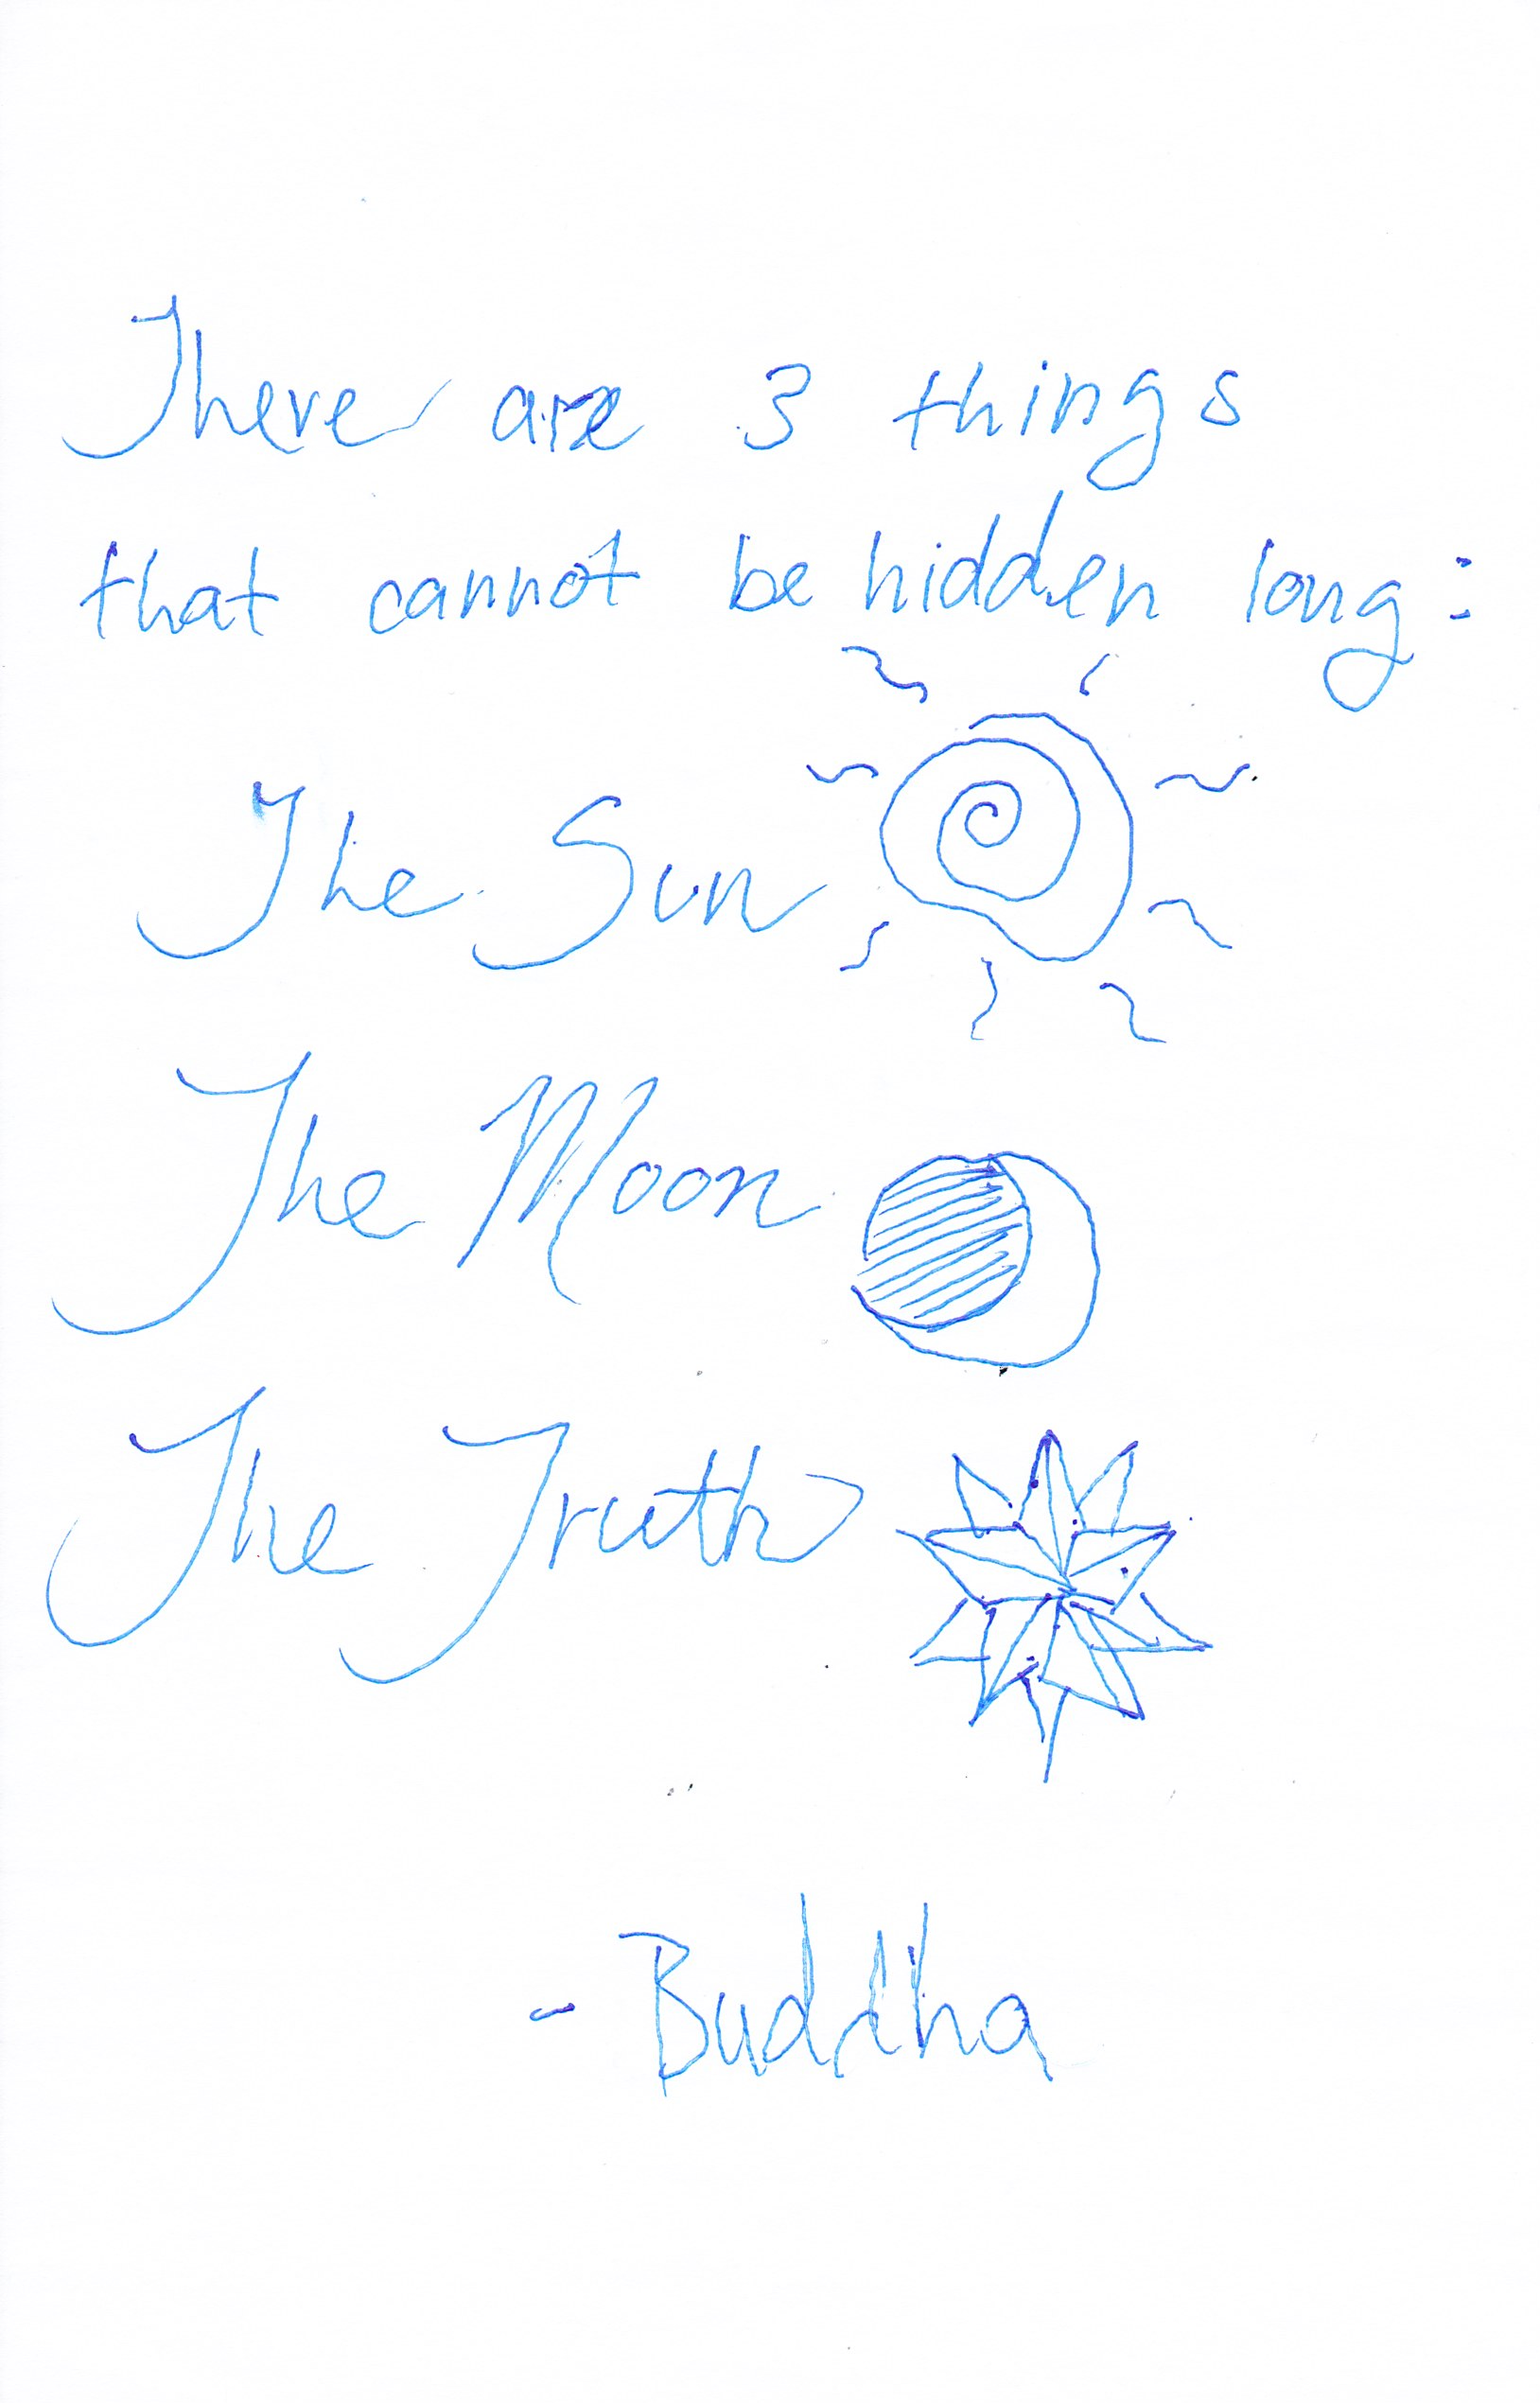 There are 3 things
that cannot be hidden long:
The Sun
The Moon
The Truth
- Buddha